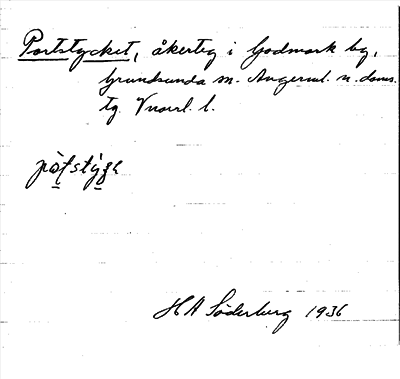 Portstycket, åkerteg i Godmark by,
Grundsunda sn. Ångerml. n. doms.
tg. Vnorrl. l.
pòṭstýgȩ
H A Söderberg 1936